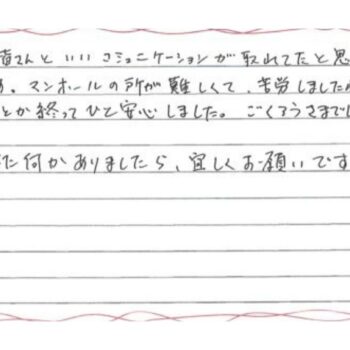 さんと いいコミュニケーションが取れてたと思
、マンホールの所が難しくて、苦労しました
とか終ってひと安心しました。ごくろうさまでし
た何かありましたら、宜しくお願いです